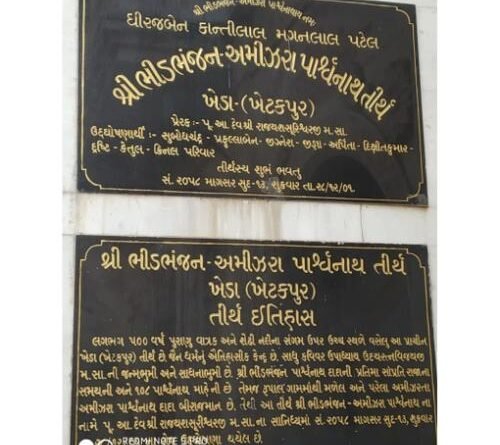 શ્રી ભીડભંજન - અમીઝરા પાર્શ્વનાથાય નમઃ
ધીરજબેન કાન્તીલાલ મગનલાલ પટેલ
શ્રી ભીડભંજન-અમીઝરા પાર્શ્વનાથ તીર્થ
ખેડા-(ખેટકપુર)
પ્રેરક :- પૂ. આ. દેવશ્રી રાજયશસૂરિશ્વરજી મ. સા.
ઉદઘોષણાર્થી :- સુબોધચંદ્ર - પ્રફુલ્લાબેન - જીગ્નેશ - જીજ્ઞા - અર્પિતા - દિક્ષીતકુમાર -
દ્રષ્ટિ - કેતુલ - કિનલ પરિવાર
તીર્થસ્ય શુભં ભવતુ
સં. ૨૦૫૮ માગસર સુદ-૧૩, શુક્રવાર તા.૨૮/૧૨/૦૧.
શ્રી ભીડભંજન - અમીઝરા પાર્શ્વનાથ તીર્થ
ખેડા (ખેટકપુર)
તીર્થ ઈતિહાસ
લગભગ ૫૦૦ વર્ષ પુરાણુ વાત્રક અને શેઢી નદીના સંગમ ઉપર ઉચ્ચ સ્થળે વસેલુ આ પ્રાચીન
ખેડા (ખેટકપુર) તીર્થ છે જૈન ધર્મનું ઐતિહાસીક કેન્દ્ર છે. સાધુ કવિવર ઉપાધ્યાય ઉદયરત્નવિજયજી
મ. સા.ની જન્મભુમી અને સાધનાભુમી છે. શ્રી ભીડભંજન પાર્શ્વનાથ દાદાની પ્રતિમા સંપ્રતિ રાજાના
સમયની અને ૧૦૮ પાર્શ્વનાથ માહેની છે. તેમજ રૂપાલ ગામમાંથી મળેલ અને પરેલા અમીઝરતા
અમીઝરા પાર્શ્વનાથ દાદા બીરાજમાન છે. તેથી આ તીર્થ શ્રી ભીડભંજન - અમીઝરાના
નામે પૂ. આ. દેવશ્રી રાજયશસૂરીશ્વરજી મ. સા.ના સાનિધ્યમાં સં. ૨૦૫૮ માગસર સુદ-૧૩, શુક્રવાર
થયેલ છે.
REDMI NOTE